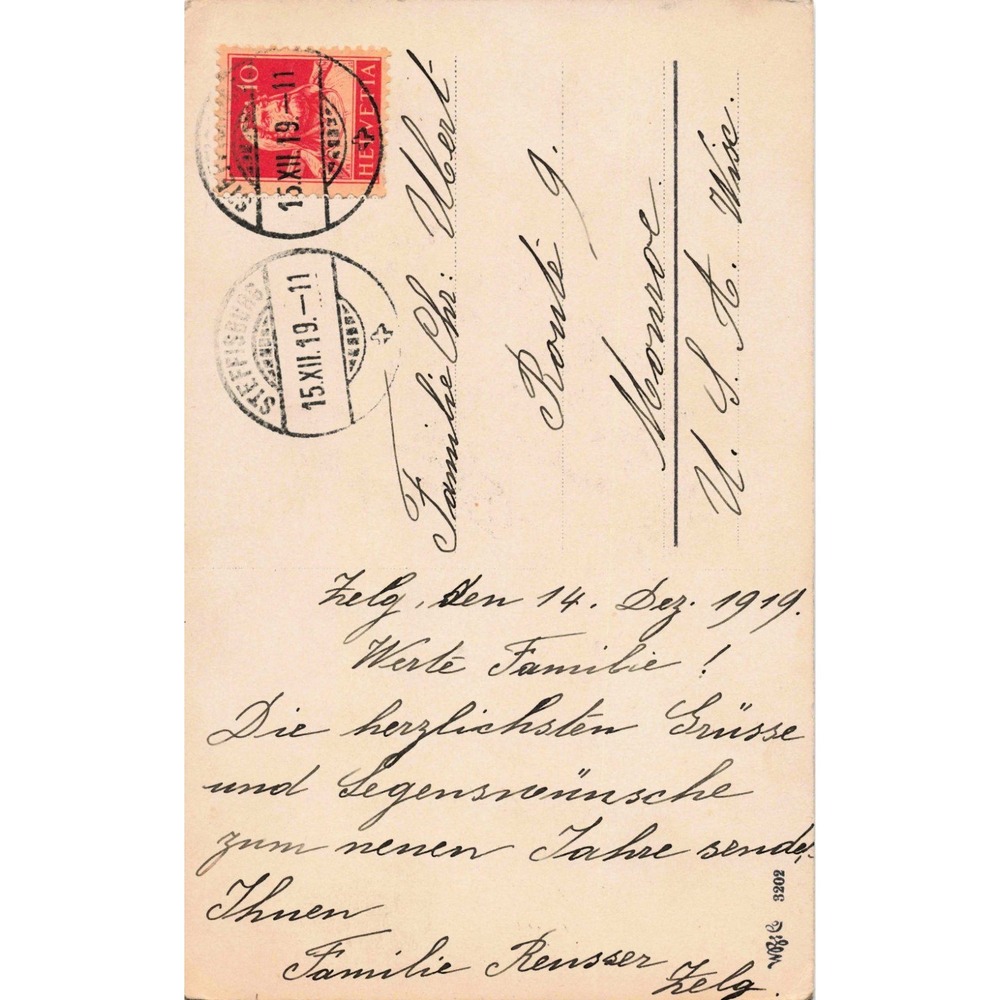 10
HELVETIA
15.XII.19.-11
STEFFISBURG
15.XII.19.-11
Familie Chr: Ubert
Routé 9.
Monroe.
U. S. A. Wisc.
Zelg, den 14. Dez. 1919.
Werte Familie!
Die herzlichsten Grüsse
und Segenswünsche
zum neuen Jahre sendet
Ihnen
Familie Reusser
Zelg.
3202